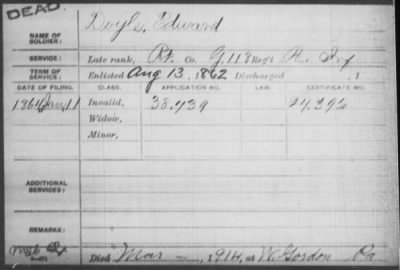 DEAD.
NAME OF SOLDIER: Doyle, Edward
SERVICE: Late rank, Pt. Co. G, 118 Reg't Pa. Inf
TERM OF SERVICE: Enlisted Aug 13, 1862 Discharged , 1
DATE OF FILING. CLASS. APPLICATION NO. LAW. CERTIFICATE NO.
1864 Jan, 11 Invalid, 38.439 24,392
Widow,
Minor,
ADDITIONAL SERVICES:
REMARKS:
Died Mar — , 1914, at W. Gordon Pa